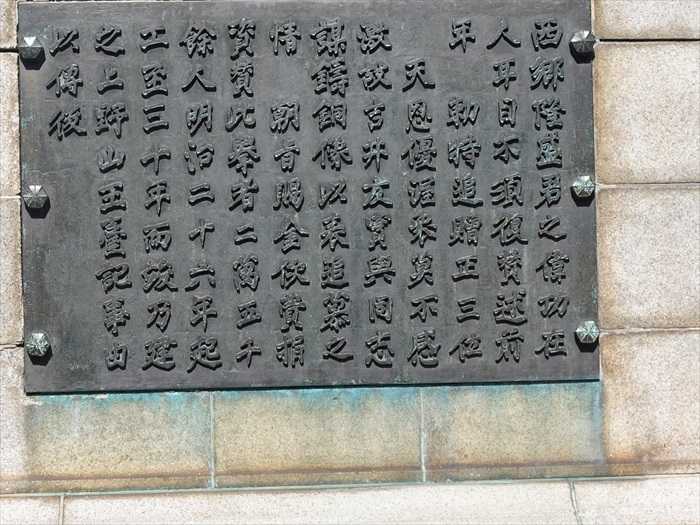 西郷隆盛君之偉功在
人耳目不須復賛述前
年　勅特追贈正三位
天恩優渥衆莫不感
激故吉井友實與同志
謀鋳銅像以表追慕之
情　朝旨賜金佽費捐
資賛此擧者二萬五千
餘人明治二十六年起
工至三十年而竣乃建
之上野山王臺記事由
以傳後